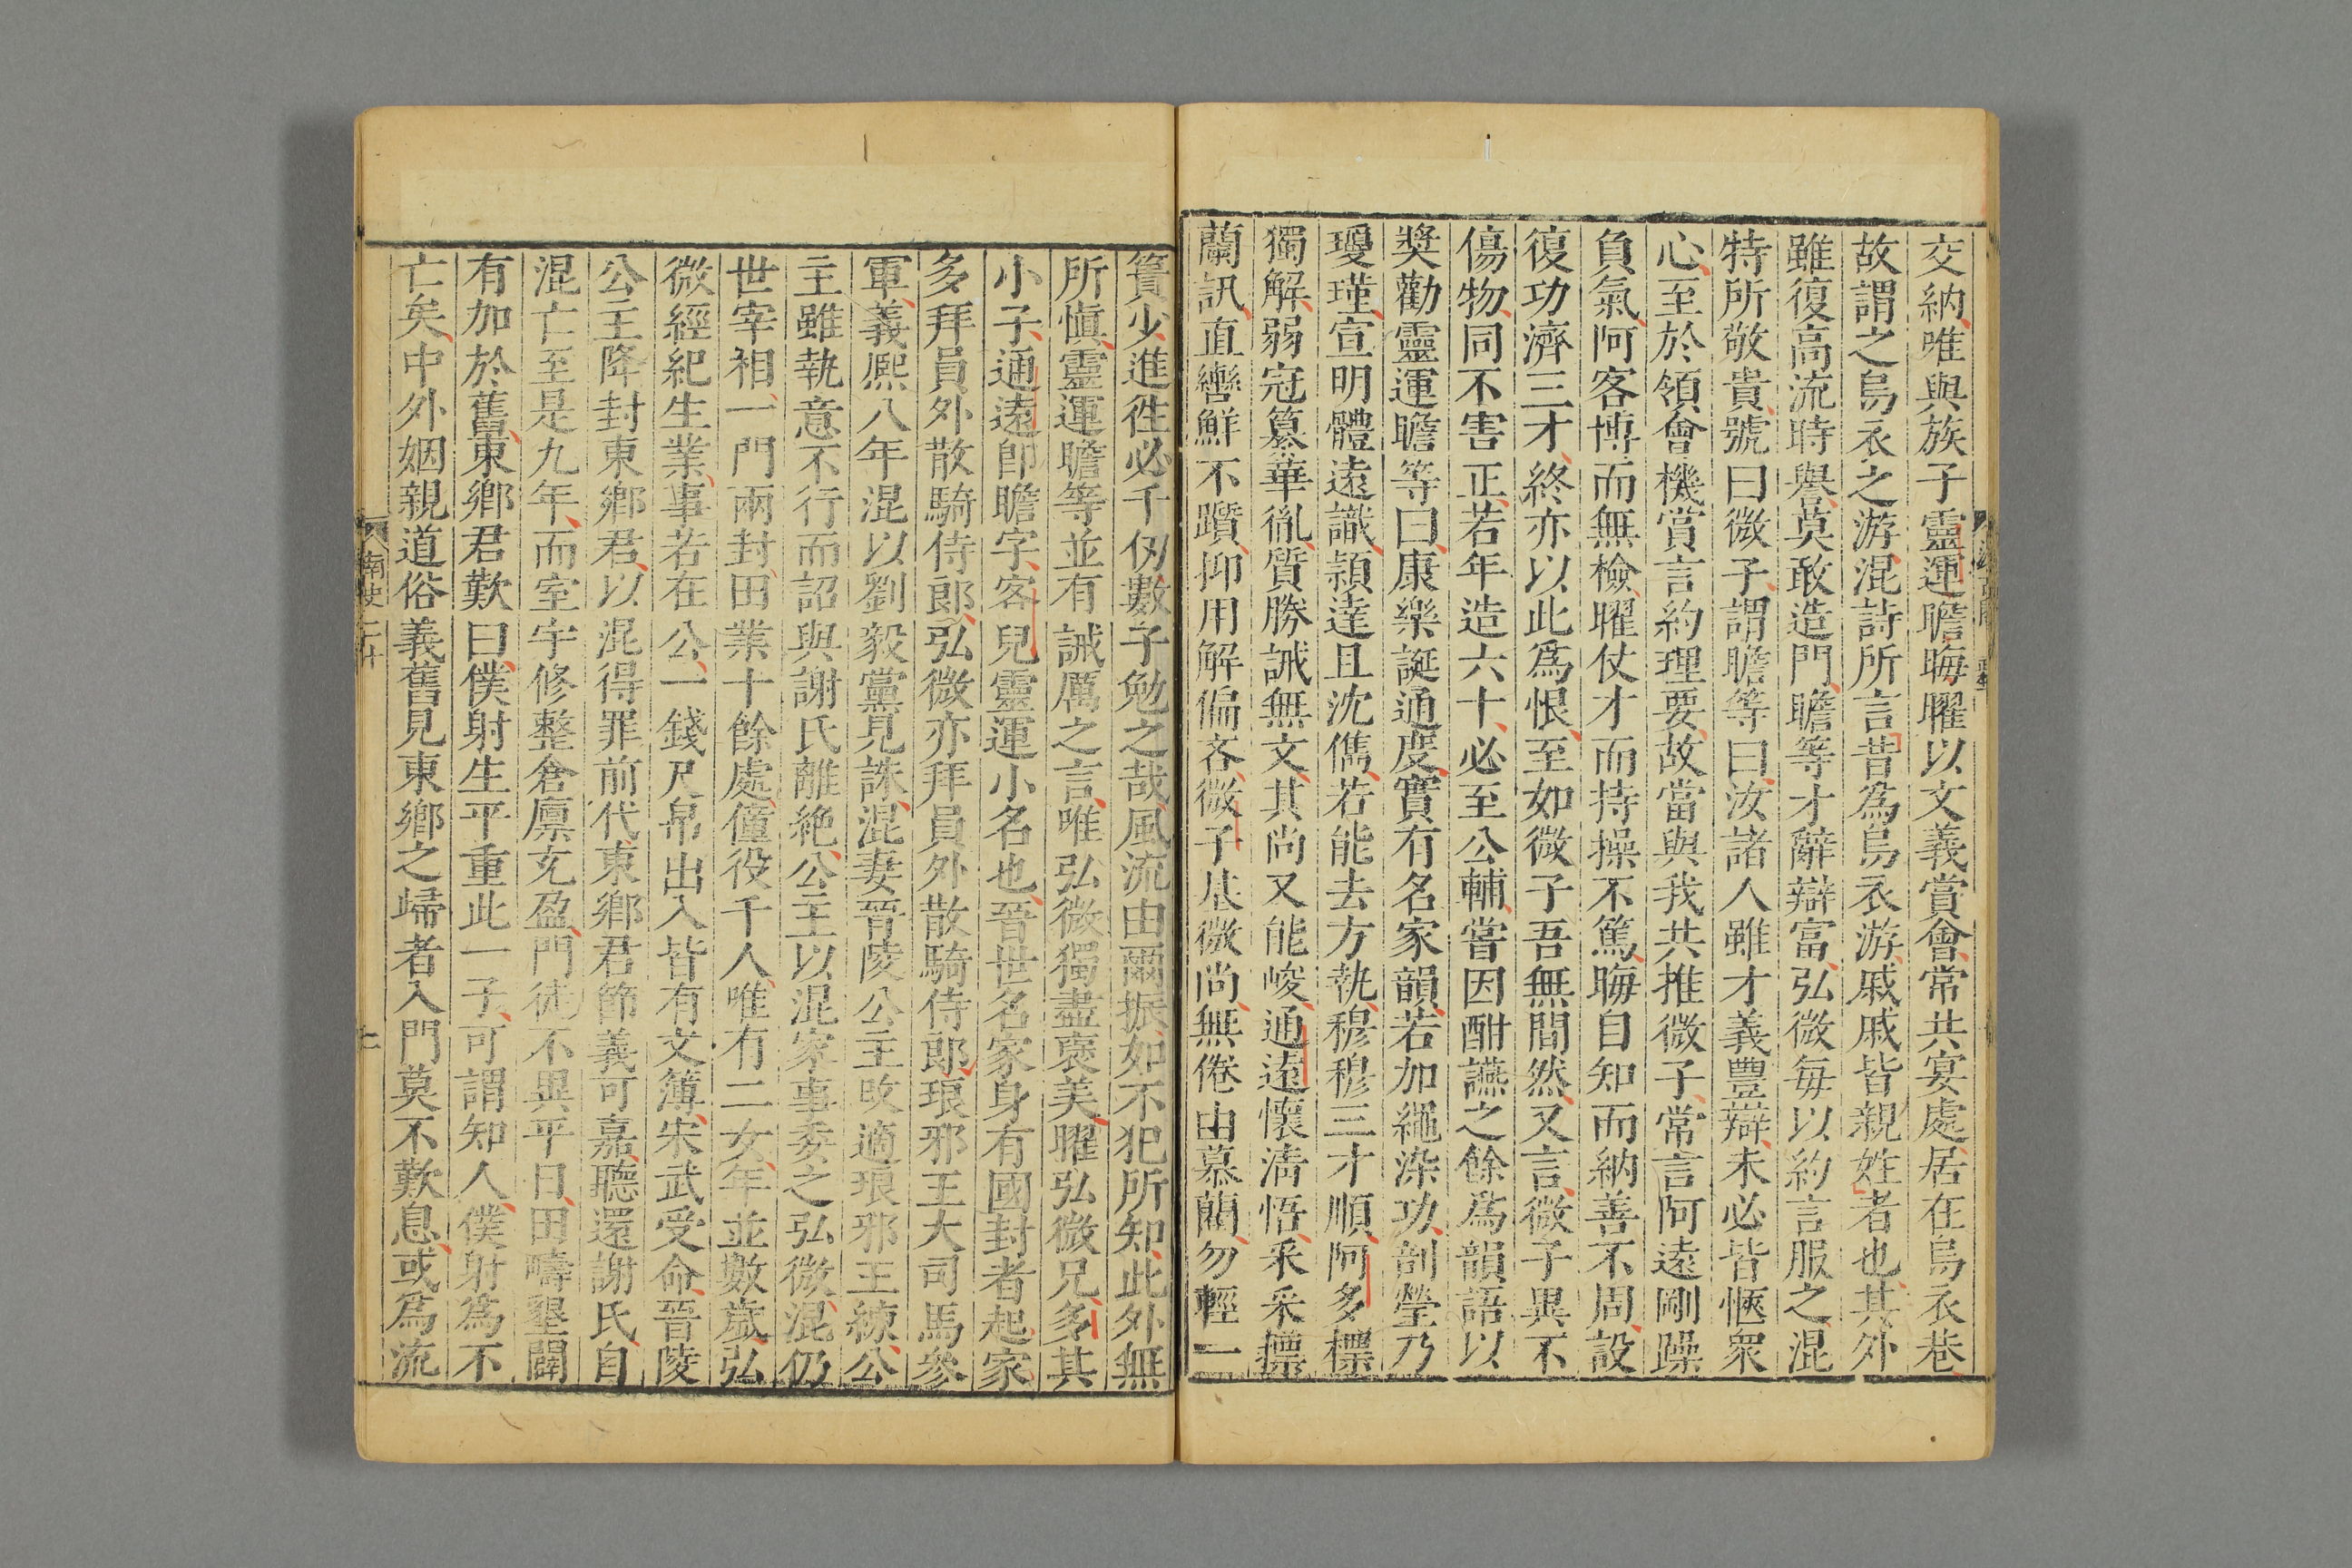 交納唯與族子靈運瞻晦曜以文義賞會常共宴處居在烏衣巷
故謂之烏衣之游混詩所言昔為烏衣游戚戚皆親姓者也其外
雖復高流時譽莫敢造門瞻等才辭辯富弘微每以約言服之混
特所敬貴號曰微子謂瞻等曰汝諸人雖才義豐辯未必皆愜衆
心至於領會機賞言約理要故當與我共推微子常言阿遠剛躁
負氣阿客博而無檢曜仗才而持操不篤晦自知而納善不周設
復功濟三才終亦以此爲恨至如微子吾無間然又言微子異不
傷物同不害正若年造六十必至公輔嘗因酣讌之餘爲韻語以
奬勸靈運瞻等曰康樂誕通度實有名家韻若加繩染功剖瑩乃
瓊瑾宣明體遠識頴達且沈儁若能去方執穆穆三才順阿多標
獨解弱冠纂華胤質勝誡無文其尚又能峻通遠懷清悟采采摽
蘭訊直轡鮮不躓抑用解偏吝微子基微尚無倦由慕藺勿輕一
簣少進徃必千仞數子勉之哉風流由爾振如不犯所知此外無
所愼靈運瞻等並有誡厲之言唯弘微獨盡褒美曜弘微兄多其
小子通遠卽瞻字客兒靈運小名也晉世名家身有國封者起家
多拜員外散騎侍郎弘微亦拜員外散騎侍郎琅邪王大司馬參
軍義熙八年混以劉毅黨見誅混妻晉陵公主改適琅邪王練公
主雖執意不行而詔與謝氏離絶公主以混家事委之弘微混仍
世宰相一門兩封田業十餘處僮役千人唯有二女年並數歲弘
微經紀生業事若在公一錢尺帛出入皆有文簿宋武受命晉陵
公主降封東鄉君以混得罪前代東鄉君節義可嘉聽還謝氏自
混亡至是九年而室宇修整倉廩充盈門徒不異平日田疇墾闢
有加於舊東鄉君歎曰僕射生平重此一子可謂知人僕射爲不
亡矣中外姻親道俗義舊見東鄉之歸者入門莫不歎息或爲流
南史二十